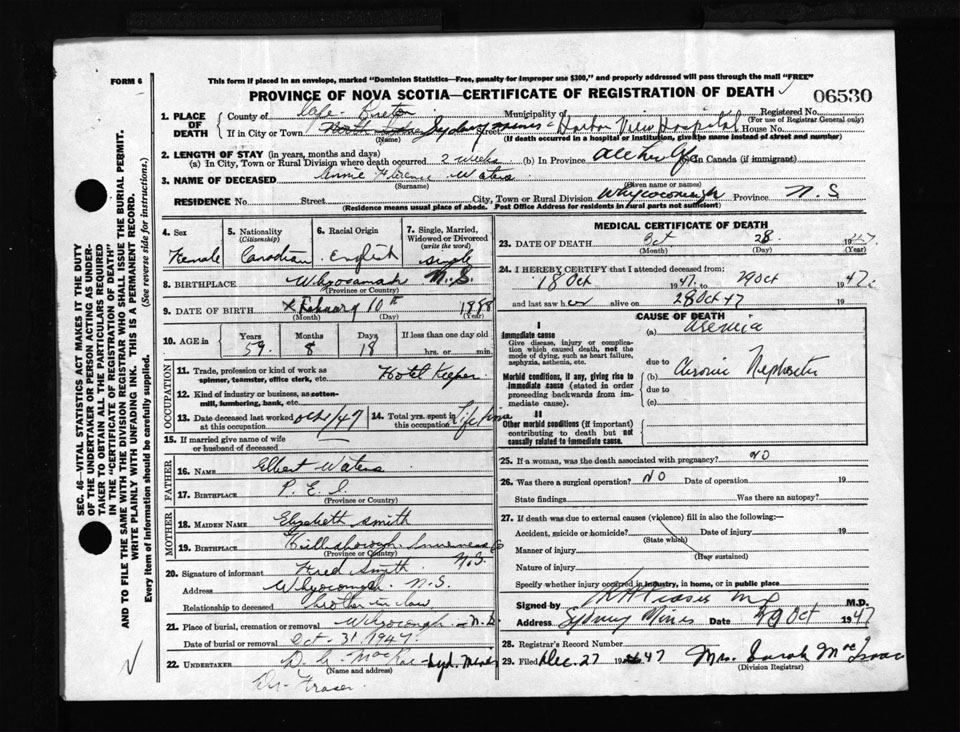 FORM 6
This form if placed in an envelope, marked "Dominion Statistics—Free, penalty for improper use $300," and properly addressed will pass through the mail "FREE"
PROVINCE OF NOVA SCOTIA—CERTIFICATE OF REGISTRATION OF DEATH
06530
1. PLACE OF DEATH
County of Cape Breton Municipality of Registered No.
(For use of Registrar General only)
If in City or Town North Sydney Sydney Mines Street Harbor View Hospital House No.
(Name) (If death occurred in a hospital or institution, give the name instead of street and number)
2. LENGTH OF STAY (in years, months and days)
(a) In City, Town or Rural Division where death occurred 2 weeks (b) In Province all her life (c) In Canada (if immigrant)
3. NAME OF DECEASED Annie Florence Waters
(Surname) (Given name or names)
RESIDENCE No. Street City, Town or Rural Division Whycocomagh Province N.S
(Residence means usual place of abode. Post Office Address for residents in rural parts not sufficient)
4. Sex Female
5. Nationality (Citizenship) Canadian
6. Racial Origin English
7. Single, Married, Widowed or Divorced (write the word) Single
8. BIRTHPLACE N.S.
(Province or Country)
9. DATE OF BIRTH February 10th 1888
(Month) (Day) (Year)
10. AGE in Years 59 Months 8 Days 18 If less than one day old hrs. or min.
OCCUPATION
11. Trade, profession or kind of work as spinner, teamster, office clerk, etc. Hotel Keeper
12. Kind of industry or business, as cotton-mill, lumbering, bank, etc.
13. Date deceased last worked at this occupation Oct 1/47
14. Total yrs. spent in this occupation Life time
15. If married give name of wife or husband of deceased
FATHER
16. NAME Elbert Waters
17. BIRTHPLACE P. E. I.
(Province or Country)
MOTHER
18. MAIDEN NAME Elizabeth Smith
19. BIRTHPLACE Hillsborough Inverness Co N.S.
(Province or Country)
20. Signature of informant Fred Smith
Address Whycocomagh N.S.
Relationship to deceased brother in law
21. Place of burial, cremation or removal Whycocomagh N.S.
Date of burial or removal Oct. 31. 1947.
22. UNDERTAKER Syd. Mines
(Name and address)
Dr. Fraser.
MEDICAL CERTIFICATE OF DEATH
23. DATE OF DEATH Oct 28 1947
(Month) (Day) (Year)
24. I HEREBY CERTIFY that I attended deceased from:
18 Oct 1947 to 29 Oct 1947
and last saw her alive on 28 Oct 47 19
CAUSE OF DEATH
I
Immediate cause
Give disease, injury or complication which caused death, not the mode of dying, such as heart failure, asphyxia, asthenia, etc.
(a)
due to
Morbid conditions, if any, giving rise to immediate cause (stated in order proceeding backwards from immediate cause).
(b) Chronic Nephritis
due to
(c)
II
Other morbid conditions (if important) contributing to death but not causally related to immediate cause.
25. If a woman, was the death associated with pregnancy? NO
26. Was there a surgical operation? NO Date of operation 19
State findings Was there an autopsy?
27. If death was due to external causes (violence) fill in also the following:—
Accident, suicide or homicide? Date of injury 19
(State which)
Manner of injury
(How sustained)
Nature of injury
Specify whether injury occurred in industry, in home, or in public place
Signed by Fraser MD M.D.
Address Sydney Mines Date 29 Oct 1947
28. Registrar's Record Number
29. Filed Dec. 27 1947 Mrs. Sarah MacIsaac
(Division Registrar)
SEC. 46—VITAL STATISTICS ACT MAKES IT THE DUTY
OF THE UNDERTAKER OR PERSON ACTING AS UNDER-
TAKER TO OBTAIN ALL THE PARTICULARS REQUIRED
IN THE "CERTIFICATE OF REGISTRATION OF DEATH"
AND TO FILE THE SAME WITH THE DIVISION REGISTRAR WHO SHALL ISSUE THE BURIAL PERMIT.
WRITE PLAINLY WITH UNFADING INK. THIS IS A PERMANENT RECORD.
Every item of information should be carefully supplied. (See reverse side for instructions.)